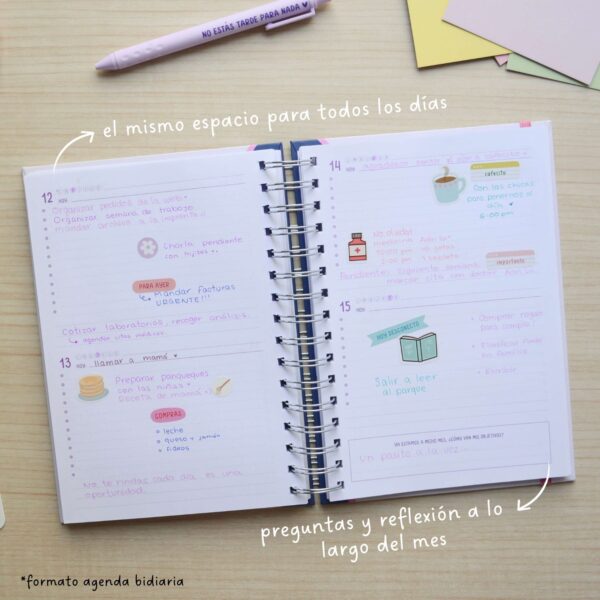 NO ESTÁS TARDE PARA NADA ♥
el mismo espacio para todos los días
12
NOV
Organizar pedidos de la web
Organizar semana de trabajo
mandar archivo a la imprenta!!
Charla pendiente
con mijitas
PARA AYER
Mandar facturas
URGENTE!!!
Cotizar laboratorios, recoger análisis.
agendar citas médicas
13
NOV
llamar a mamá
Preparar panqueques
con las niñas
Receta de mamá
COMPRAS
• leche
• queso + jamón
• fideos
No te rindas cada día es una
oportunidad.
14
NOV
cafecito
Con las chicas
para ponernos al
día
6:00 pm
No olvidar
medicina
2:00 pm
importante
Pendiente: siguiente semana
marcar cita con doctor
15
NOV
HOY DESCONECTO
Salir a leer
al parque
• Comprar regalo
para compra
• Planificar
en familia
• Escribir
YA ESTAMOS A MEDIO MES, ¿CÓMO VAN MIS OBJETIVOS?
Un pasito a la vez
preguntas y reflexión a lo
largo del mes
*formato agenda bidiaria